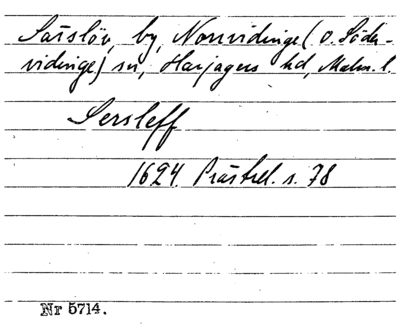 Särslöv, by, Norrvidinge (o. Söder-
vidinge) sn, Harjagers hd, Malm. l.
Sersleff
1624. Prästrel. s. 78
Nr 5714.